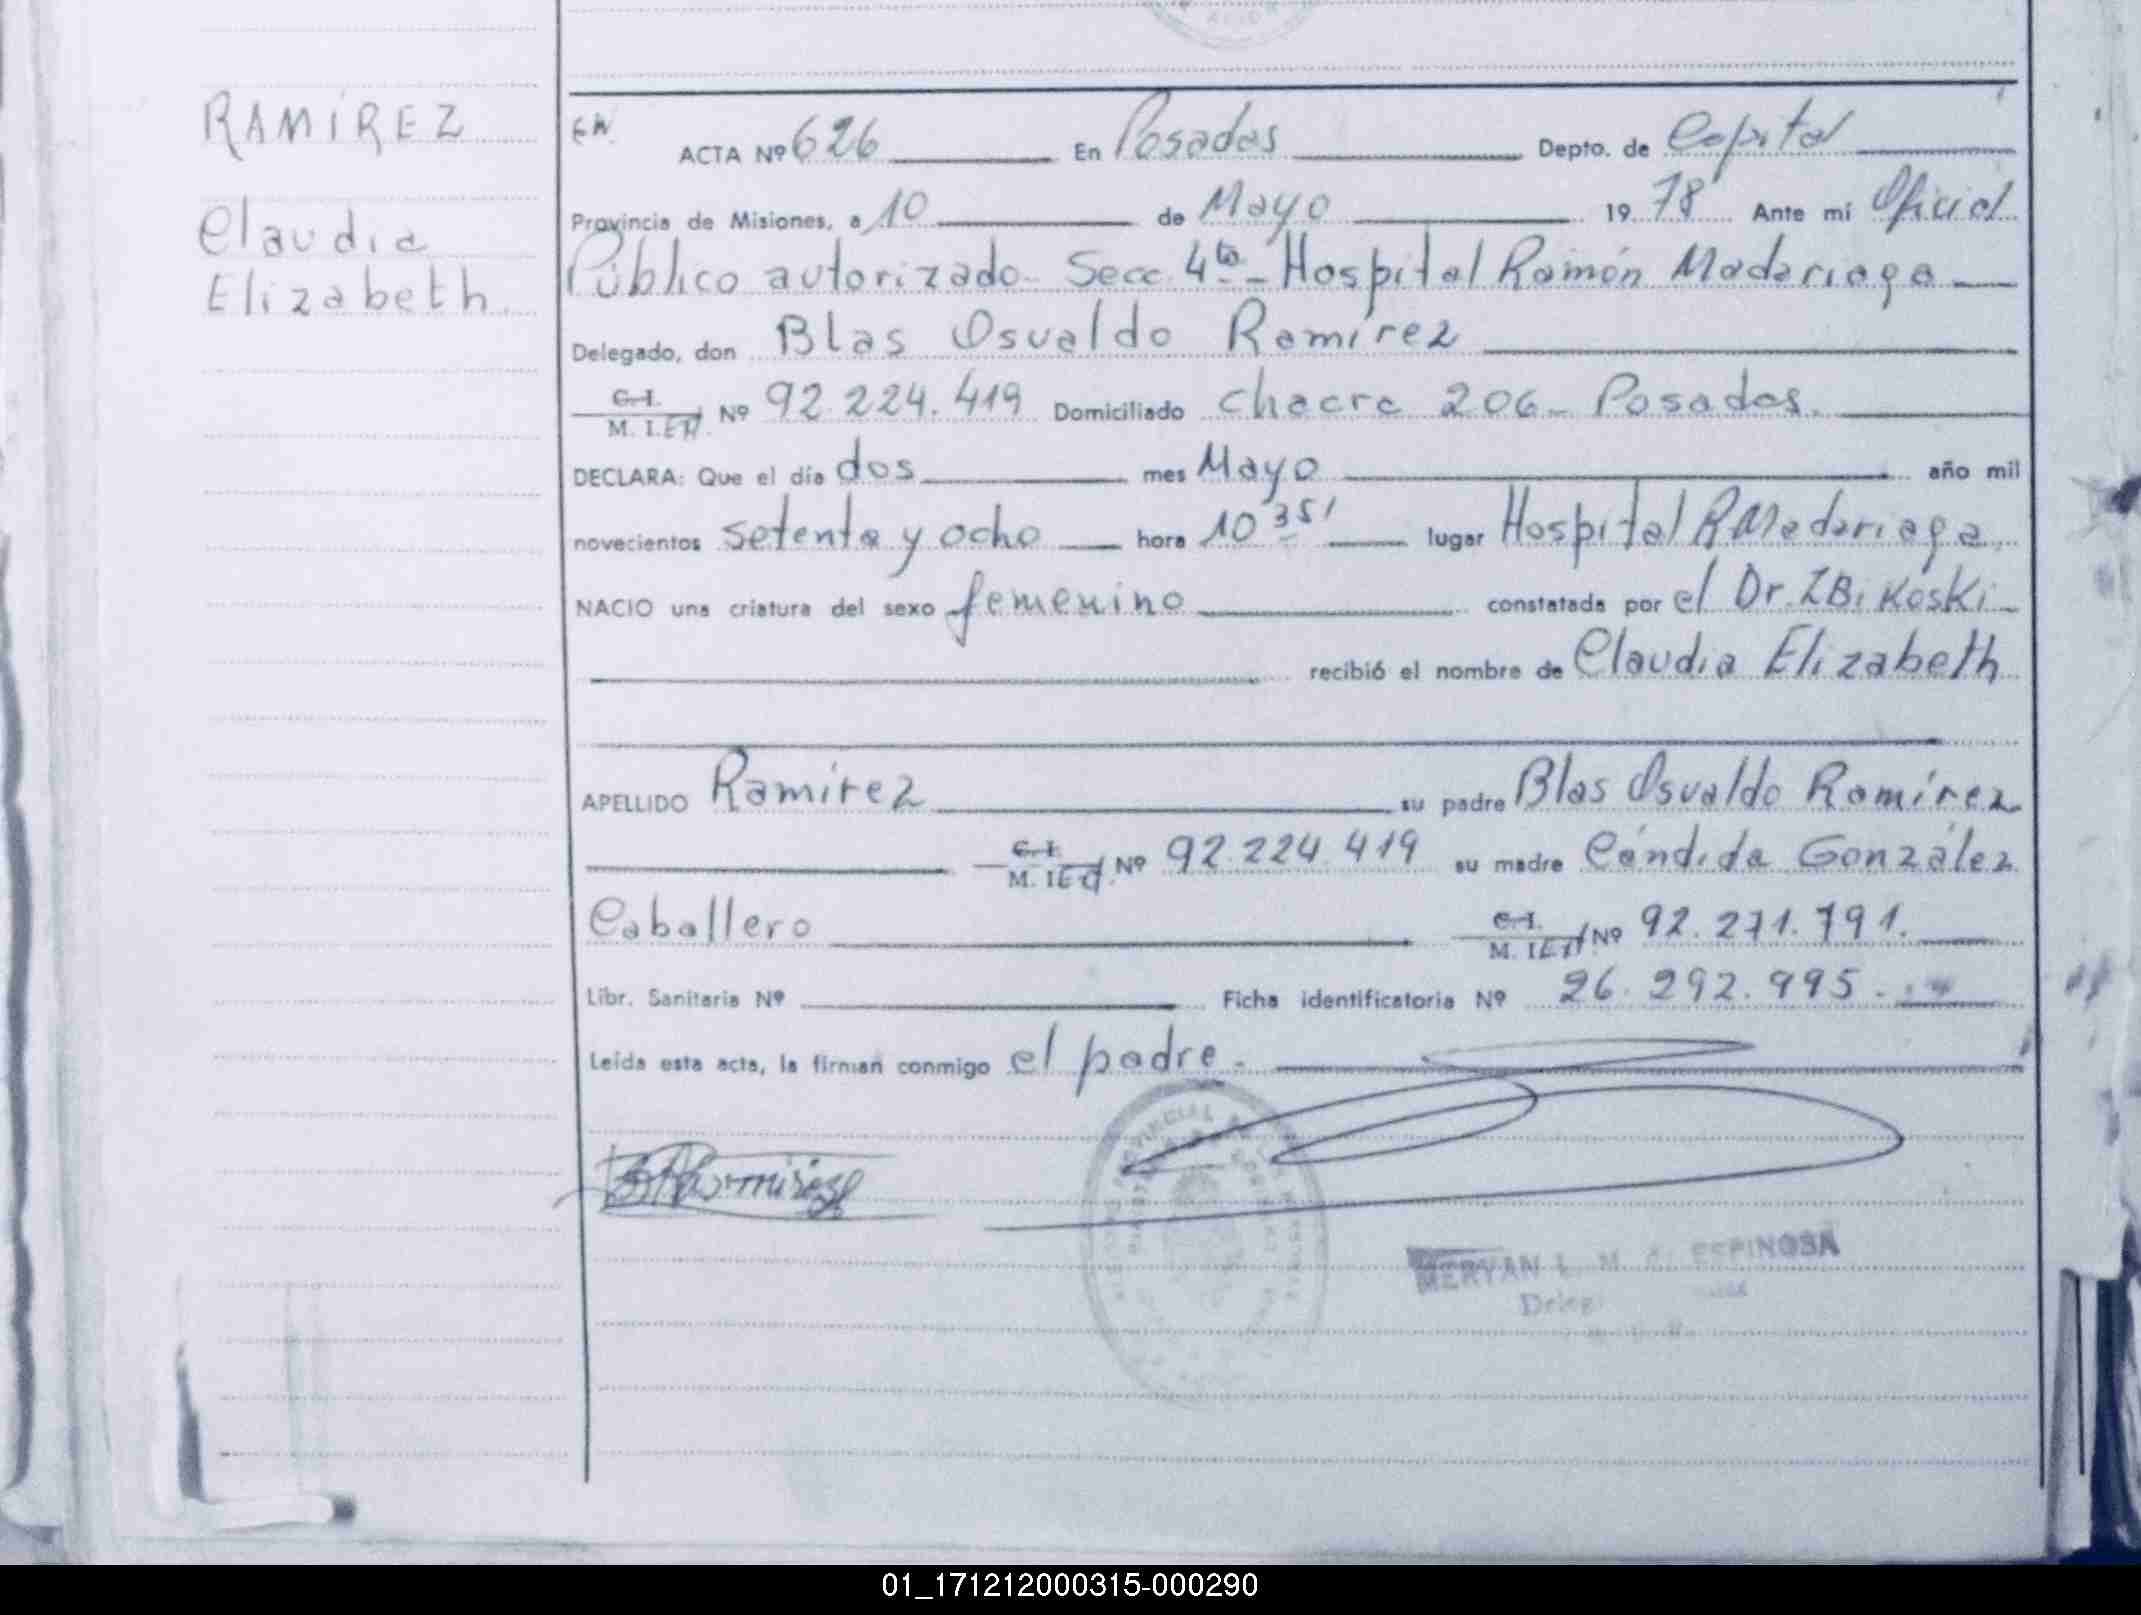 RAMÍREZ
Claudia
Elizabeth.
ACTA Nº 626 En Posadas Depto. de Capital
Provincia de Misiones, a 10 de Mayo 1978 Ante mí Oficial
Público autorizado Secc. 4ta - Hospital Ramón Madariaga
Delegado, don Blas Osvaldo Ramírez
C.I. M. I. Nº 92.224.419 Domiciliado chacra 206 - Posadas.
DECLARA: Que el día dos mes Mayo año mil
novecientos setenta y ocho hora 10 35' lugar Hospital R Madariaga
NACIO una criatura del sexo femenino constatada por el Dr.
recibió el nombre de Claudia Elizabeth
APELLIDO Ramírez su padre Blas Osvaldo Ramírez
C.I. M. I. Nº 92.224.419 su madre Cándida González
Caballero C.I. M. I. Nº 92.271.791.
Libr. Sanitaria Nº Ficha identificatoria Nº 26.292.995.
Leída esta acta, la firman conmigo el padre.
ESPINOSA
01_171212000315-000290